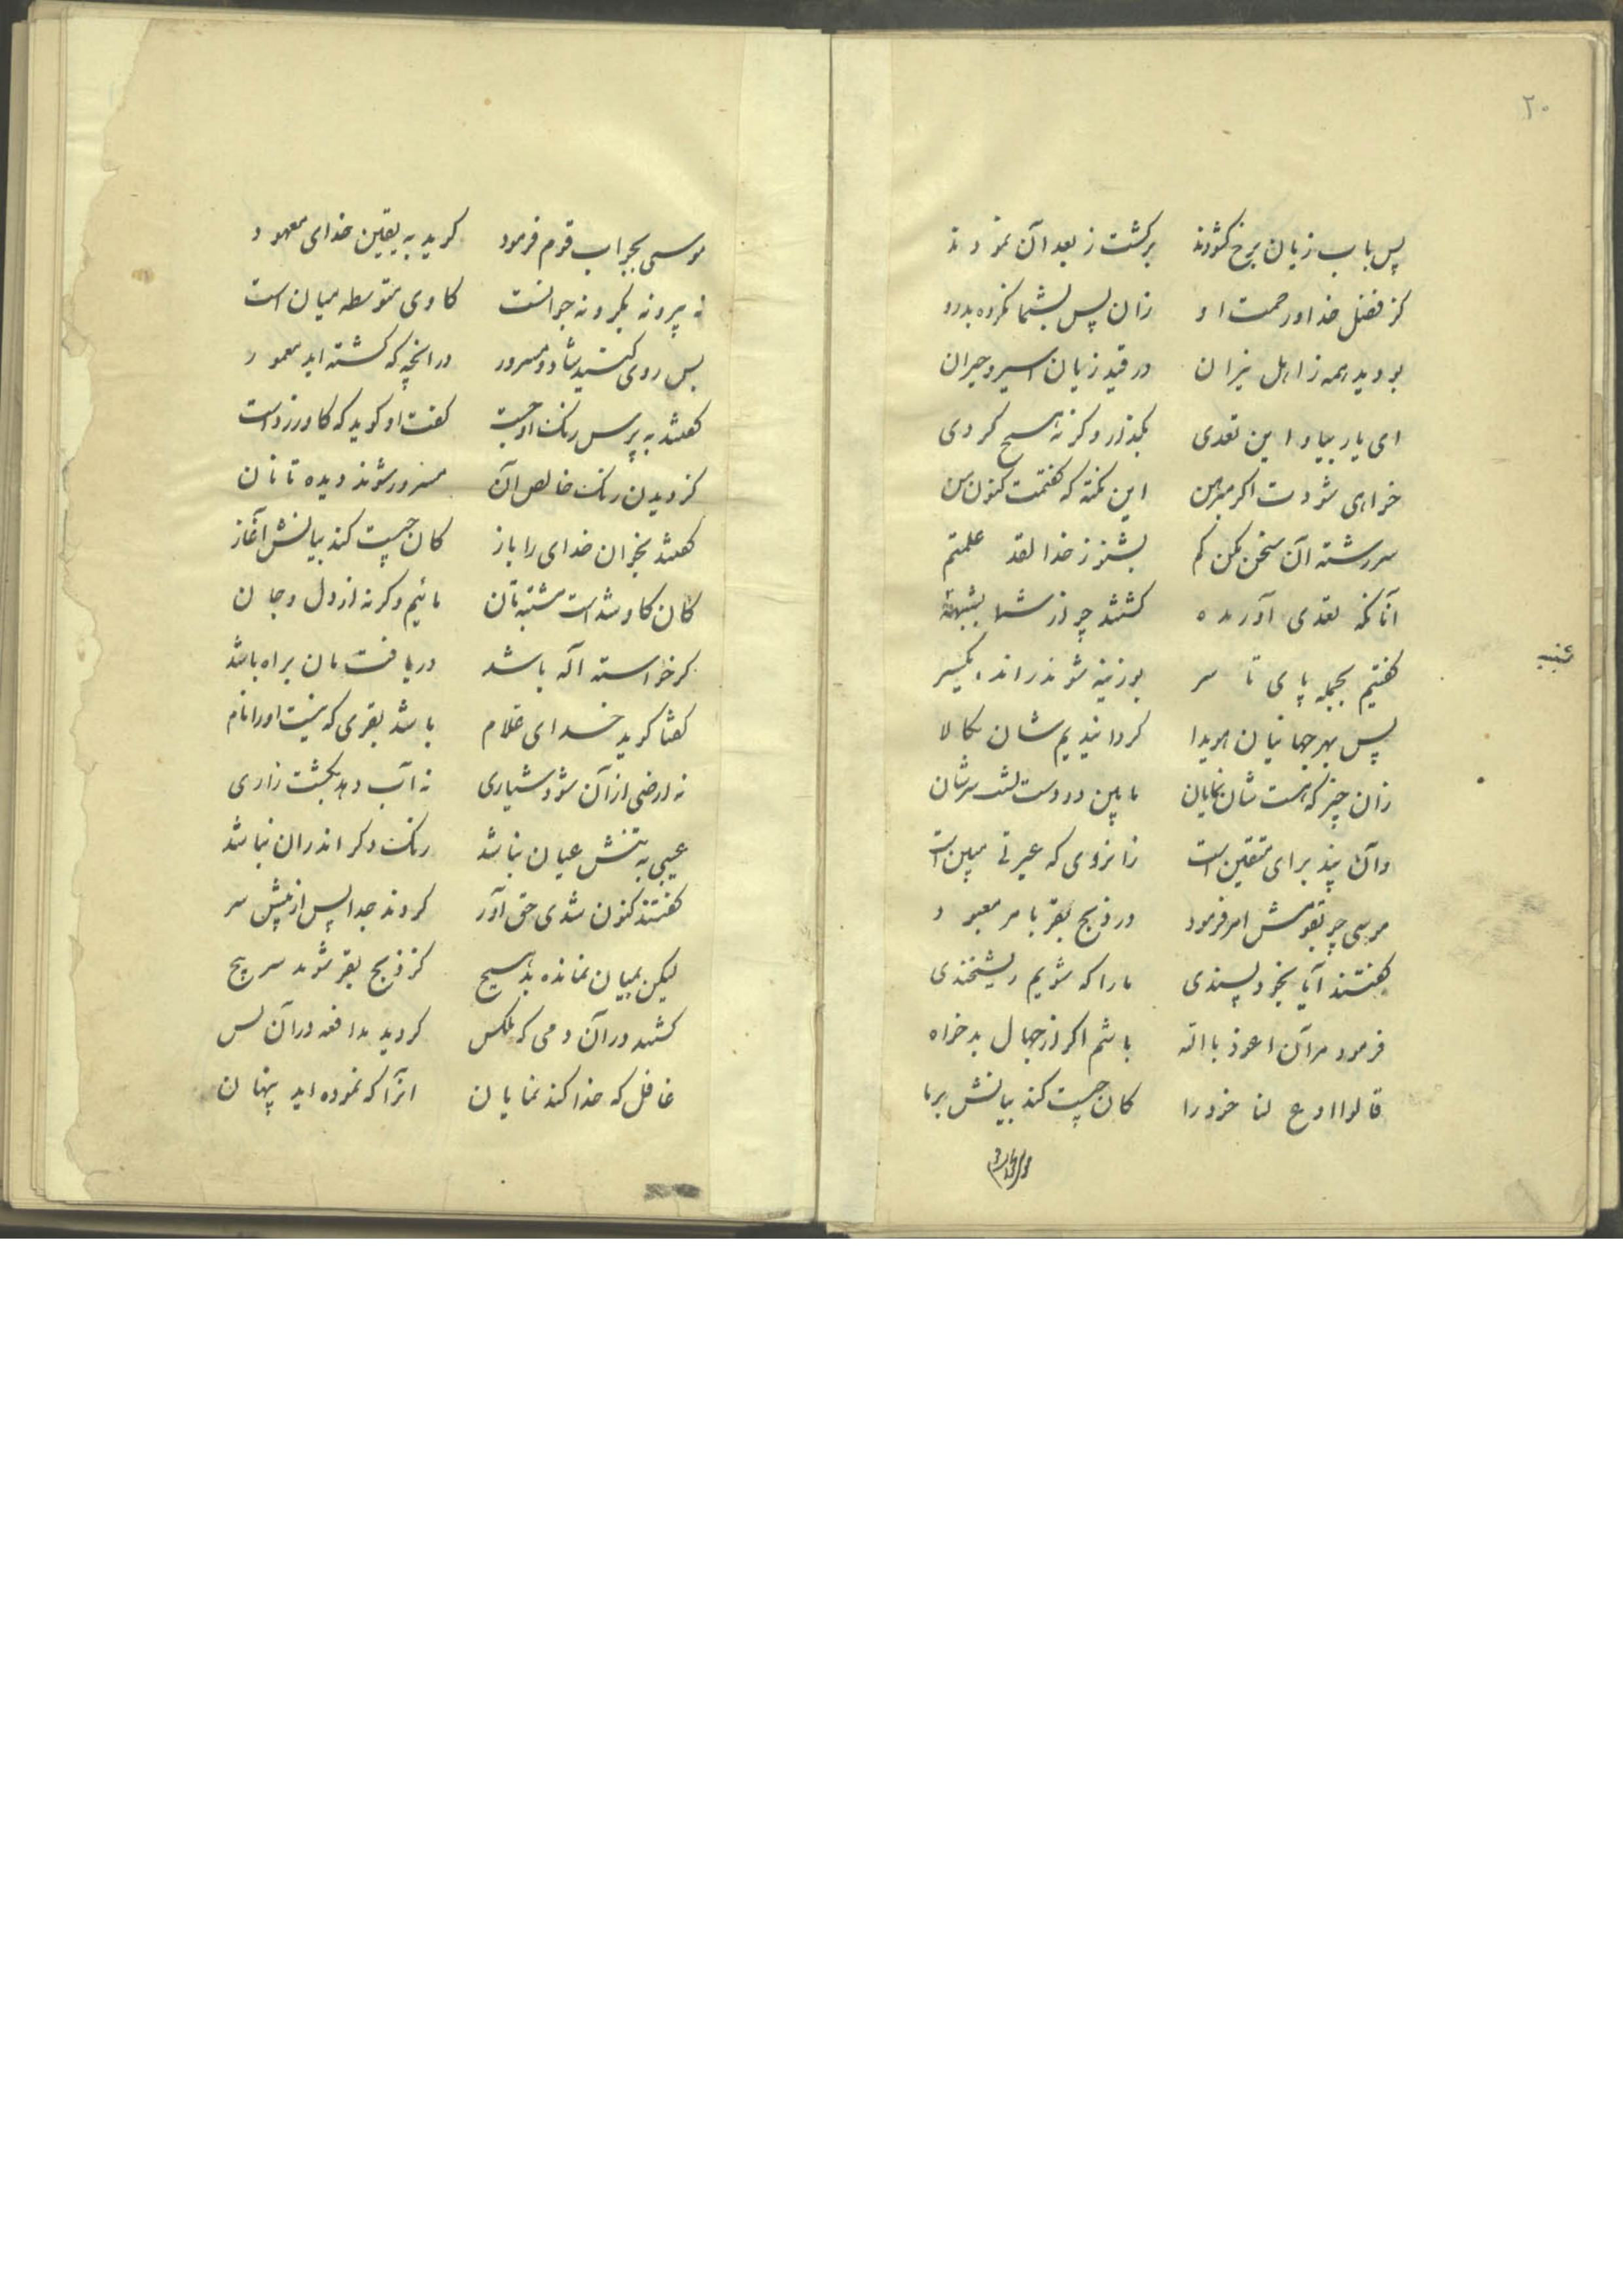 ۲۰
پس باب زیان برخ کشودند برکشت ز بعد آن نمودند
کز فضل خدا و رحمت او زان پس بشما نکرده بدرو
بودید همه ز اهل نیران در قید زیان اسیر و حیران
ای یار بیا و این تعدی بکذار وکرنه هیچ کردی
خواهی شودت اکر مبرهن این نکته که کفتمت کنون من
سررشته آن سخن مکن کم بشنو ز خدا لقد علمتم
آنانکه تعدی آوریده کشتند چو از شما بشنبه
کفتیم بجمله پای تا سر بوزینه شوند رانده یکسر
پس بهر جهانیان هویدا کردانیدیم شان نکالا
زان چیز که هست شان نمایان ما بین دو دست پشت سرشان
وآن پند برای متقین است زانروی که عبرتی مبین است
موسی چو بقومش امر فرمود در ذبح بقر بامر معبود
کفتند آیا بخود پسندی ما را که شویم ریشخندی
فرمود مر آن اعوذ باالله باشم اکر از جهال بدخواه
قالوا ادع لنا خود را کان چیست کند بیانش بر ما
موسی بجواب قوم فرمود کوید به یقین خدای معهود
نه پیر و نه بکر و نه جوانست کاوی متوسطه میان است
پس روی کنید شاد و مسرور در انچه که کشته اید معمور
کفتند به پرس رنک او چیست کفت او کوید که کاو زرد است
کز دیدن رنک خالص آن مسرور شوند دیده تانان
کفتند بخوان خدای را باز کان چیست کند بیانش آغاز
کان کاو شد است مشتبه تان مائیم وکرنه از دل و جان
کر خواسته اله باشد دریافت مان براه باشد
کفتا کوید خدای علام باشد بقری که نیست او رانام
نه ارضی از آن شود شیاری نه آب دهد بکشت زاری
عیبی به تنش عیان نباشد رنک دکر اندران نباشد
کفتند کنون شدی حق آور کردند جدا پس از تنش سر
لیکن بمیان نمانده بد هیچ کز ذبح بقر شوند سرپیچ
کشتید در آن دمی که یکس کردید مدافعه در آن پس
غافل که خدا کند نمایان انرا که نموده اید پنهان